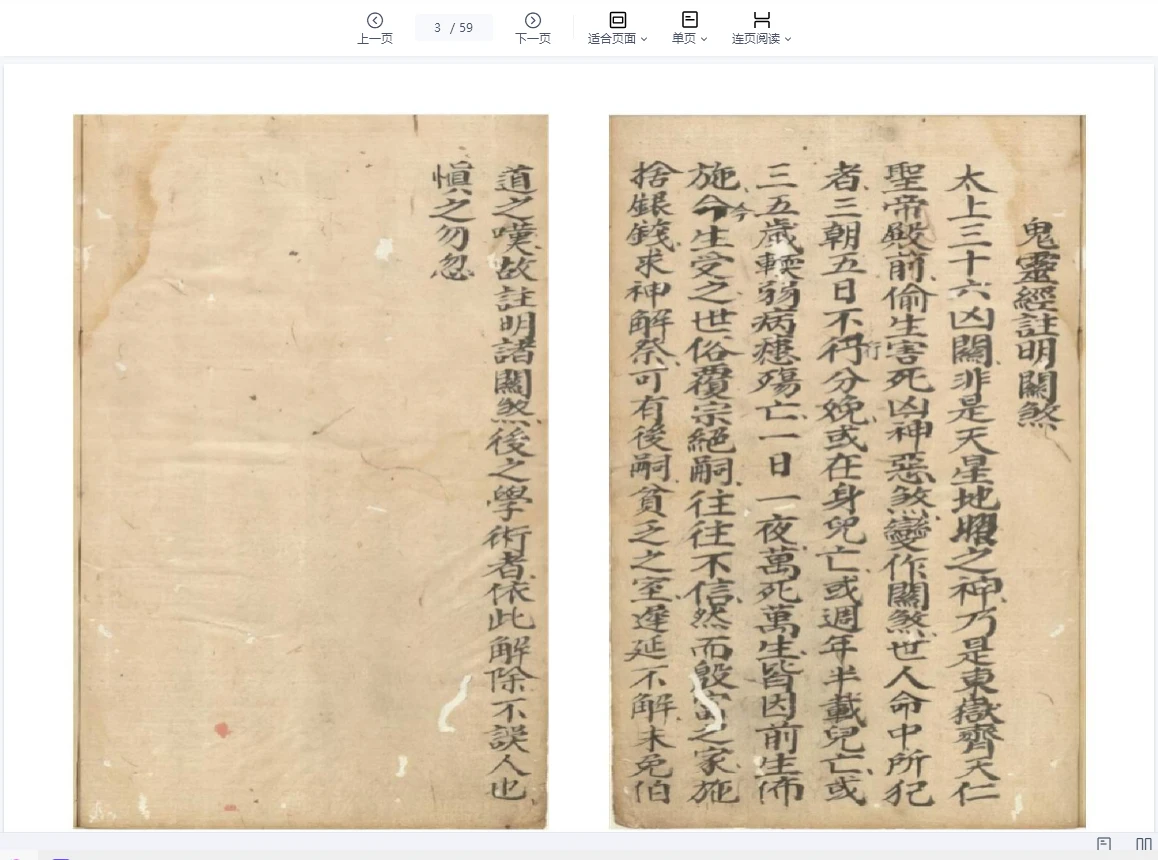 上一页
3 / 59
下一页
适合页面
单页
连页阅读
鬼靈經註明關煞
太上三十六凶關非是天星地曜之神乃是東嶽齊天仁
聖帝殿前偷生害死凶神惡煞變作關煞世人命中所犯
者三朝五日不行分娩或在身兒亡或週年半載兒亡或
行
三五歲輭弱病㾾殤亡一日一夜萬死萬生皆因前生佈
施今生受之世俗覆宗絕嗣往往不信然而毀富之家施
今
捨銀錢求神解祭可有後嗣貧乏之室遲延不解未免伯
道之嘆故註明諸關煞後之學術者依此解除不誤人也
慎之勿忽